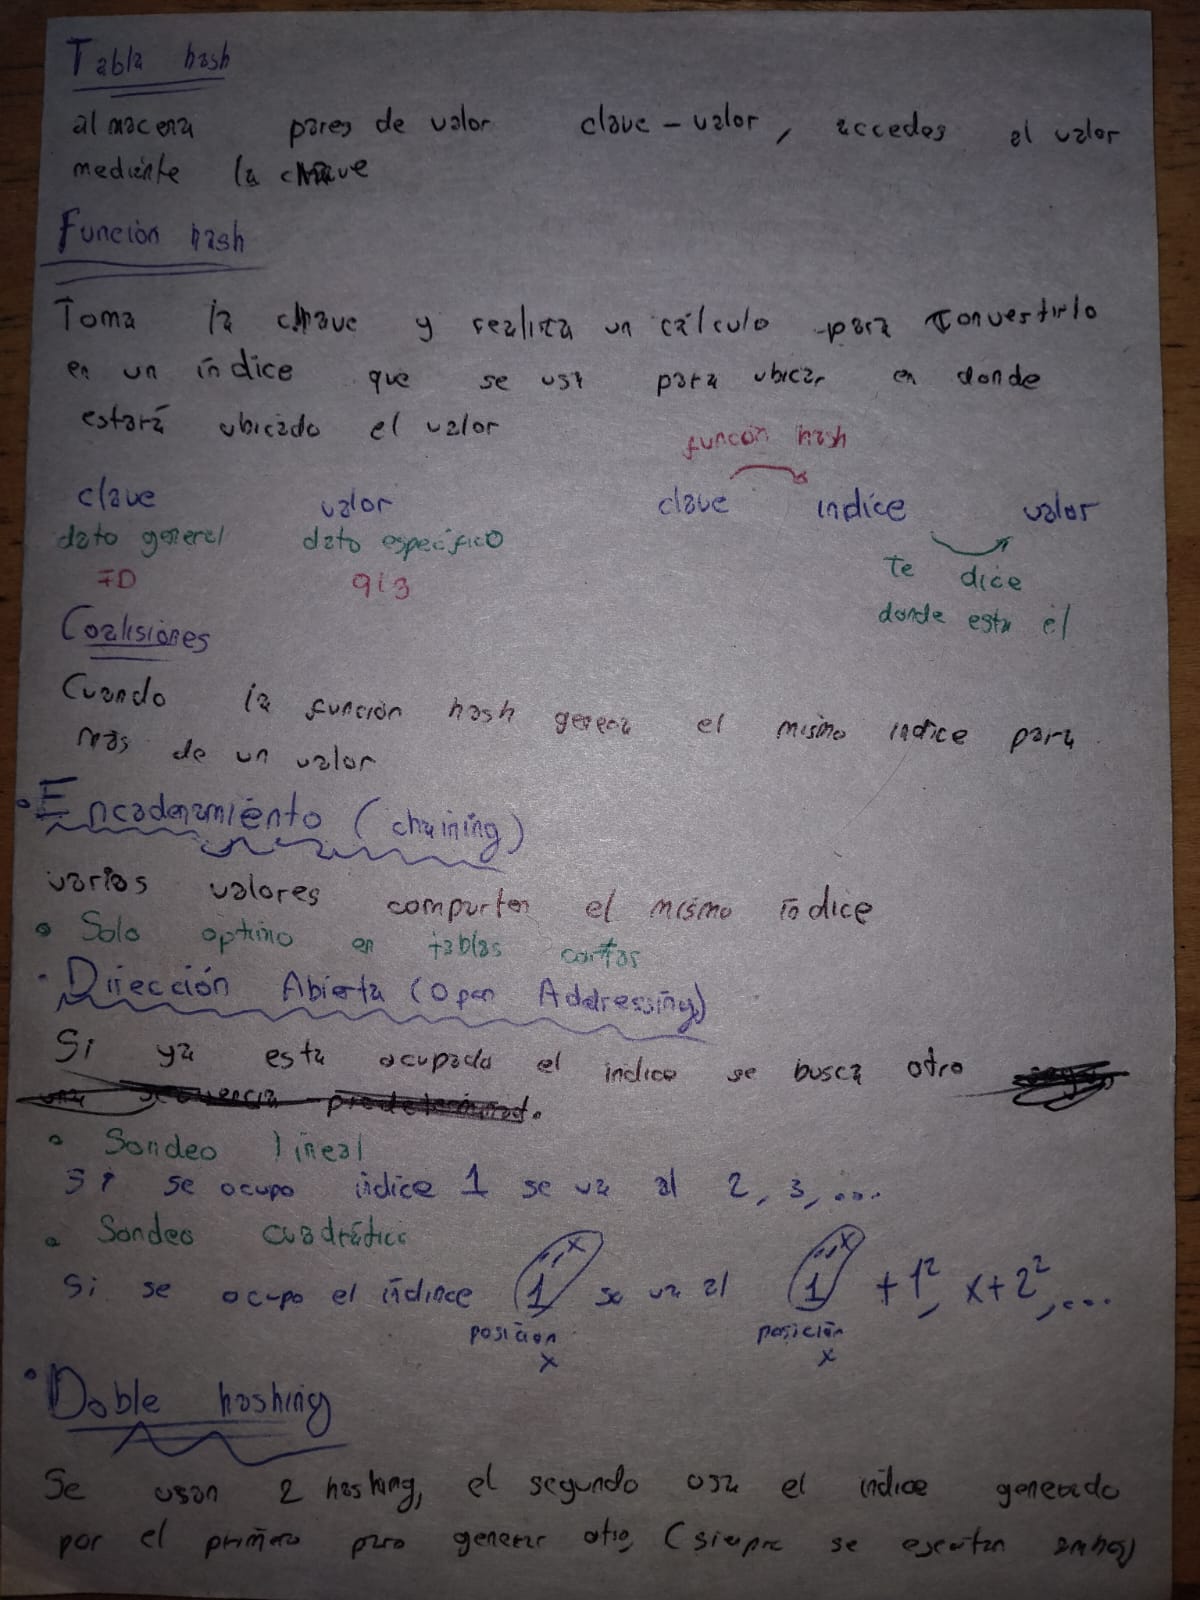 Tabla hash
almacena pares de valor clave - valor, accedes al valor
mediante la clave
Función hash
Toma la clave y realiza un cálculo para convertirlo
en un índice que se usa para ubicar en donde
estará ubicado el valor
función hash
clave valor clave indice valor
dato general dato específico
te dice
ID 913
donde esta el
Coalisiones
Cuando la función hash genera el mismo indice para
mas de un valor
• Encadenamiento (chaining)
varios valores comparten el mismo índice
• Solo optimo en tablas cortas
• Dirección Abierta (Open Addressing)
Si ya esta ocupado el indice se busca otro
una secuencia predeterminad.
• Sondeo lineal
Si se ocupo indice 1 se va al 2, 3, ...
• Sondeo cuadrático
Si se ocupo el índince 1 x se va al 1 x + 1², x + 2², ...
posición posición
x x
• Doble hashing
Se usan 2 hashing, el segundo usa el indice generado
por el primero para generar otro, (siempre se ejecutan ambos)